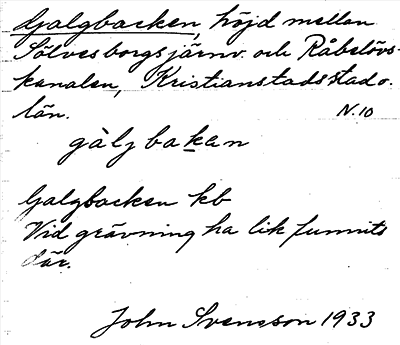 Galgbacken, höjd mellan
Sölvesborgsjärnv. och Råbelövs-
kanalen, Kristianstads stad o.
län.
N.10
gàljbakan
Galgbacken kb
Vid grävning ha lik funnits
där.
John Svensson 1933